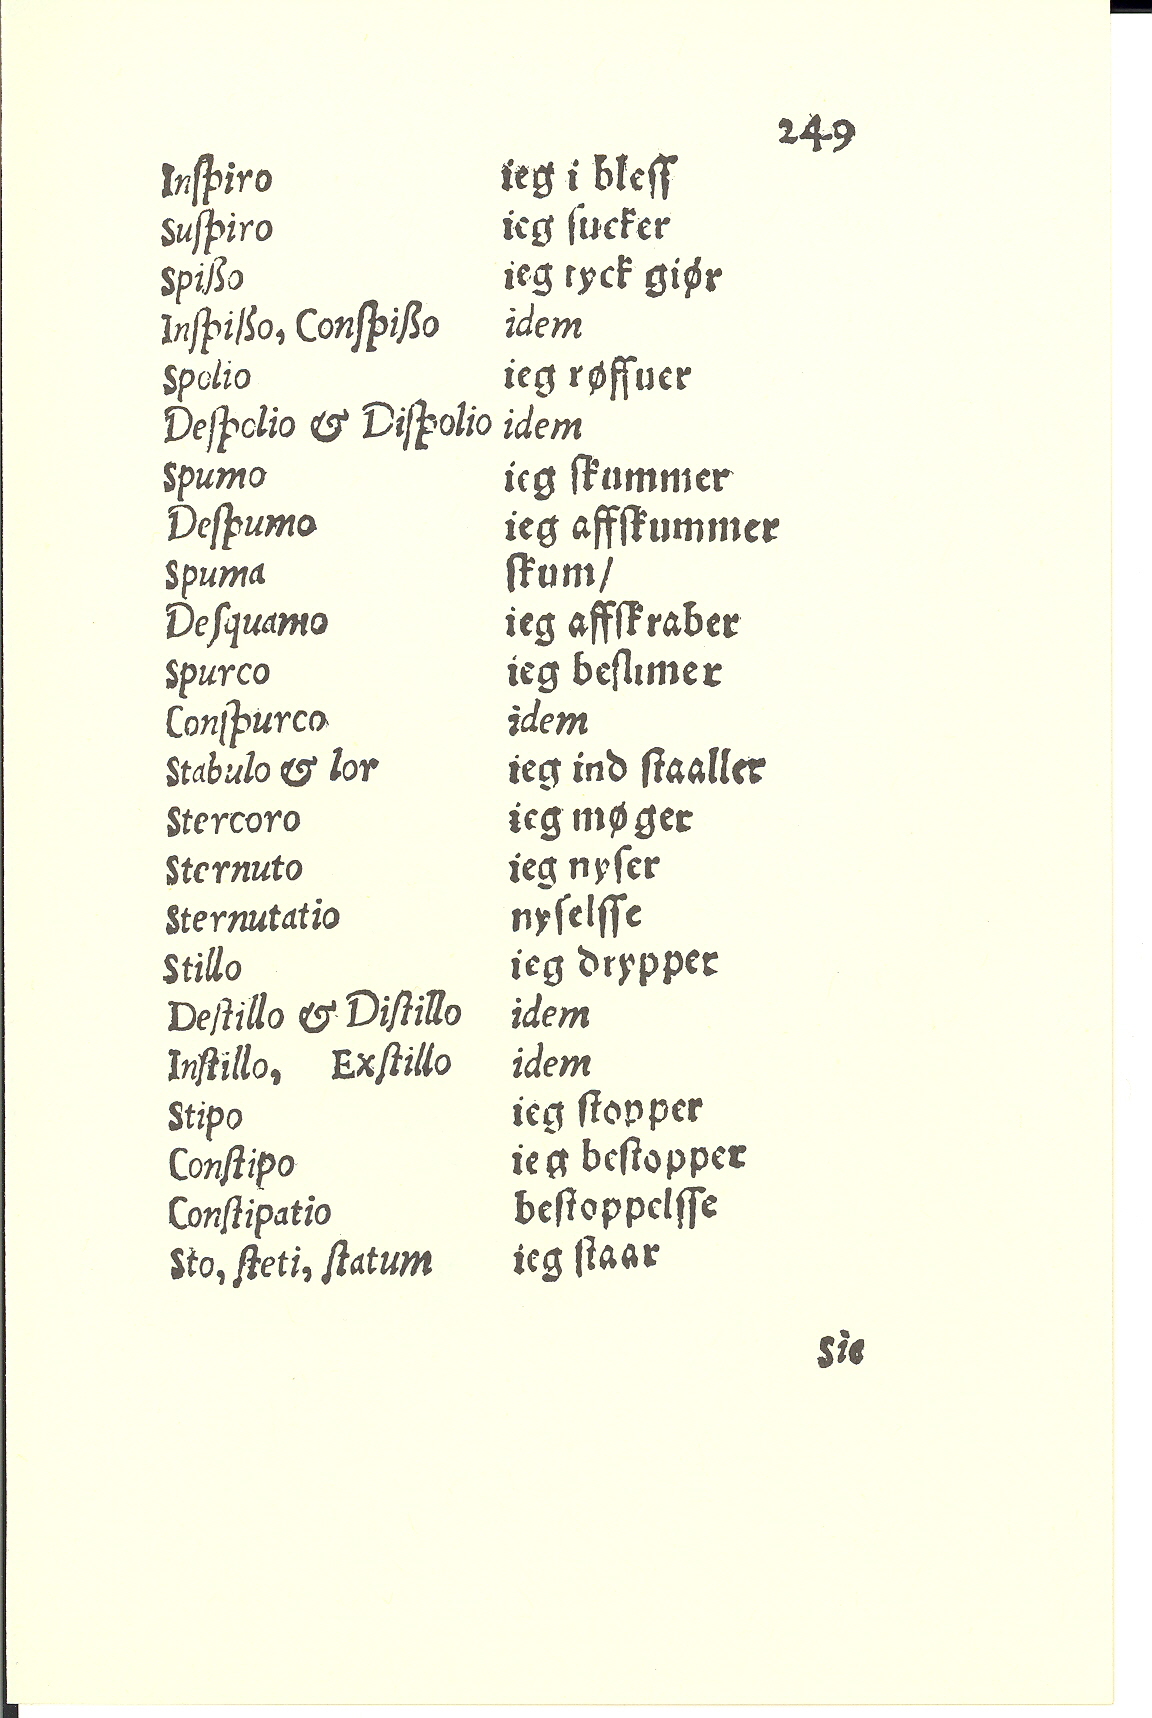 249
Inſpiro ieg i bleſſ
Suſpiro ieg ſucker
Spißo ieg tyck giør
Inſpißo, Conſpißo idem
Spolio ieg røffuer
Deſpolio & Diſpolio idem
Spumo ieg ſkummer
Deſpumo ieg affſkummer
Spuma ſkum/
Deſquamo ieg affſkraber
Spurco ieg beſlimer
Conſpurco idem
Stabulo & lor ieg ind ſtaaller
Stercoro ieg møger
Sternuto ieg nyſer
Sternutatio nyſelſſe
Stillo ieg drypper
Deſtillo & Diſtillo idem
Inſtillo, Exſtillo idem
Stipo ieg ſtopper
Conſtipo ieg beſtopper
Conſtipatio beſtoppelſſe
Sto, ſteti, ſtatum ieg ſtaar
Sic